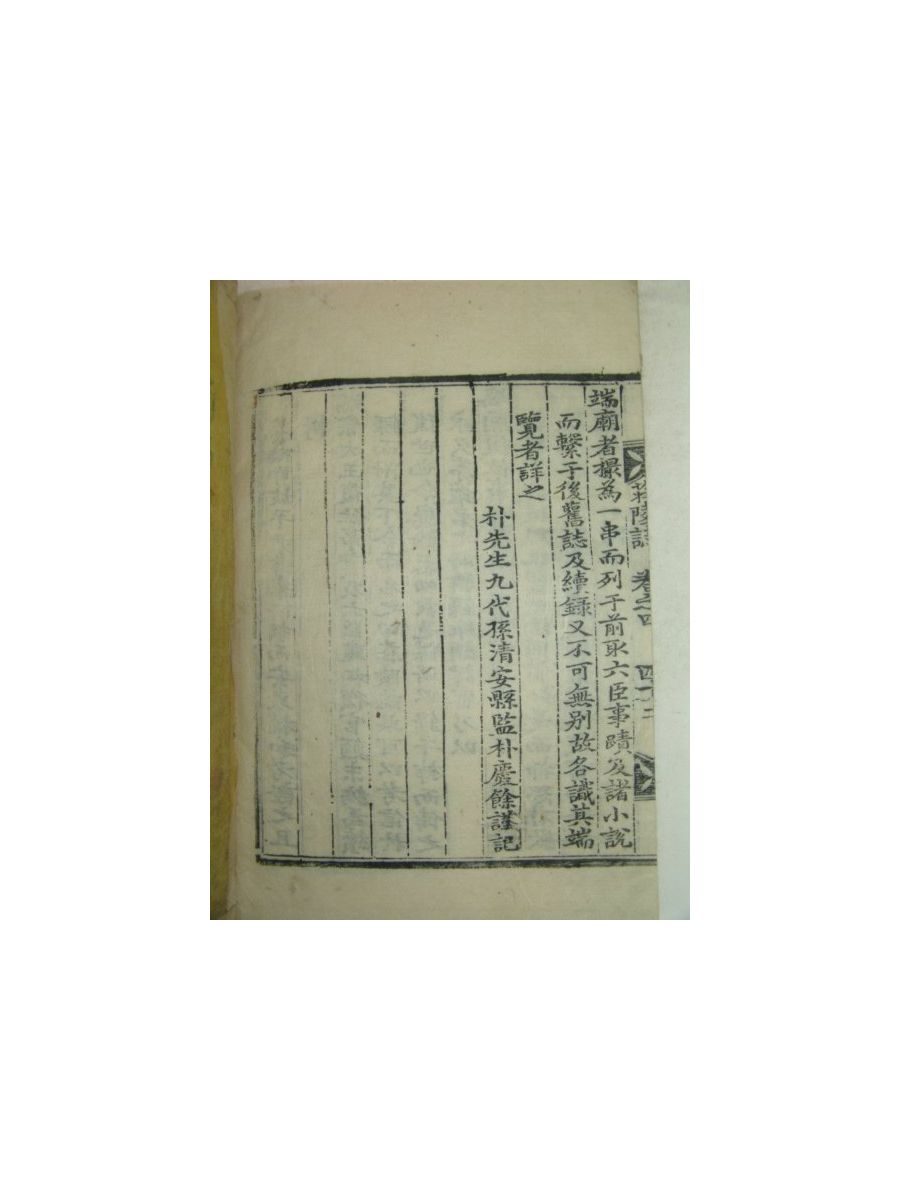 莊陵誌 卷之四 四十二
端廟者撮為一串而列于前取六臣事蹟及諸小說
而繫于後舊誌及續錄又不可無別故各識其端
覽者詳之
朴先生九代孫清安縣監朴慶餘謹記